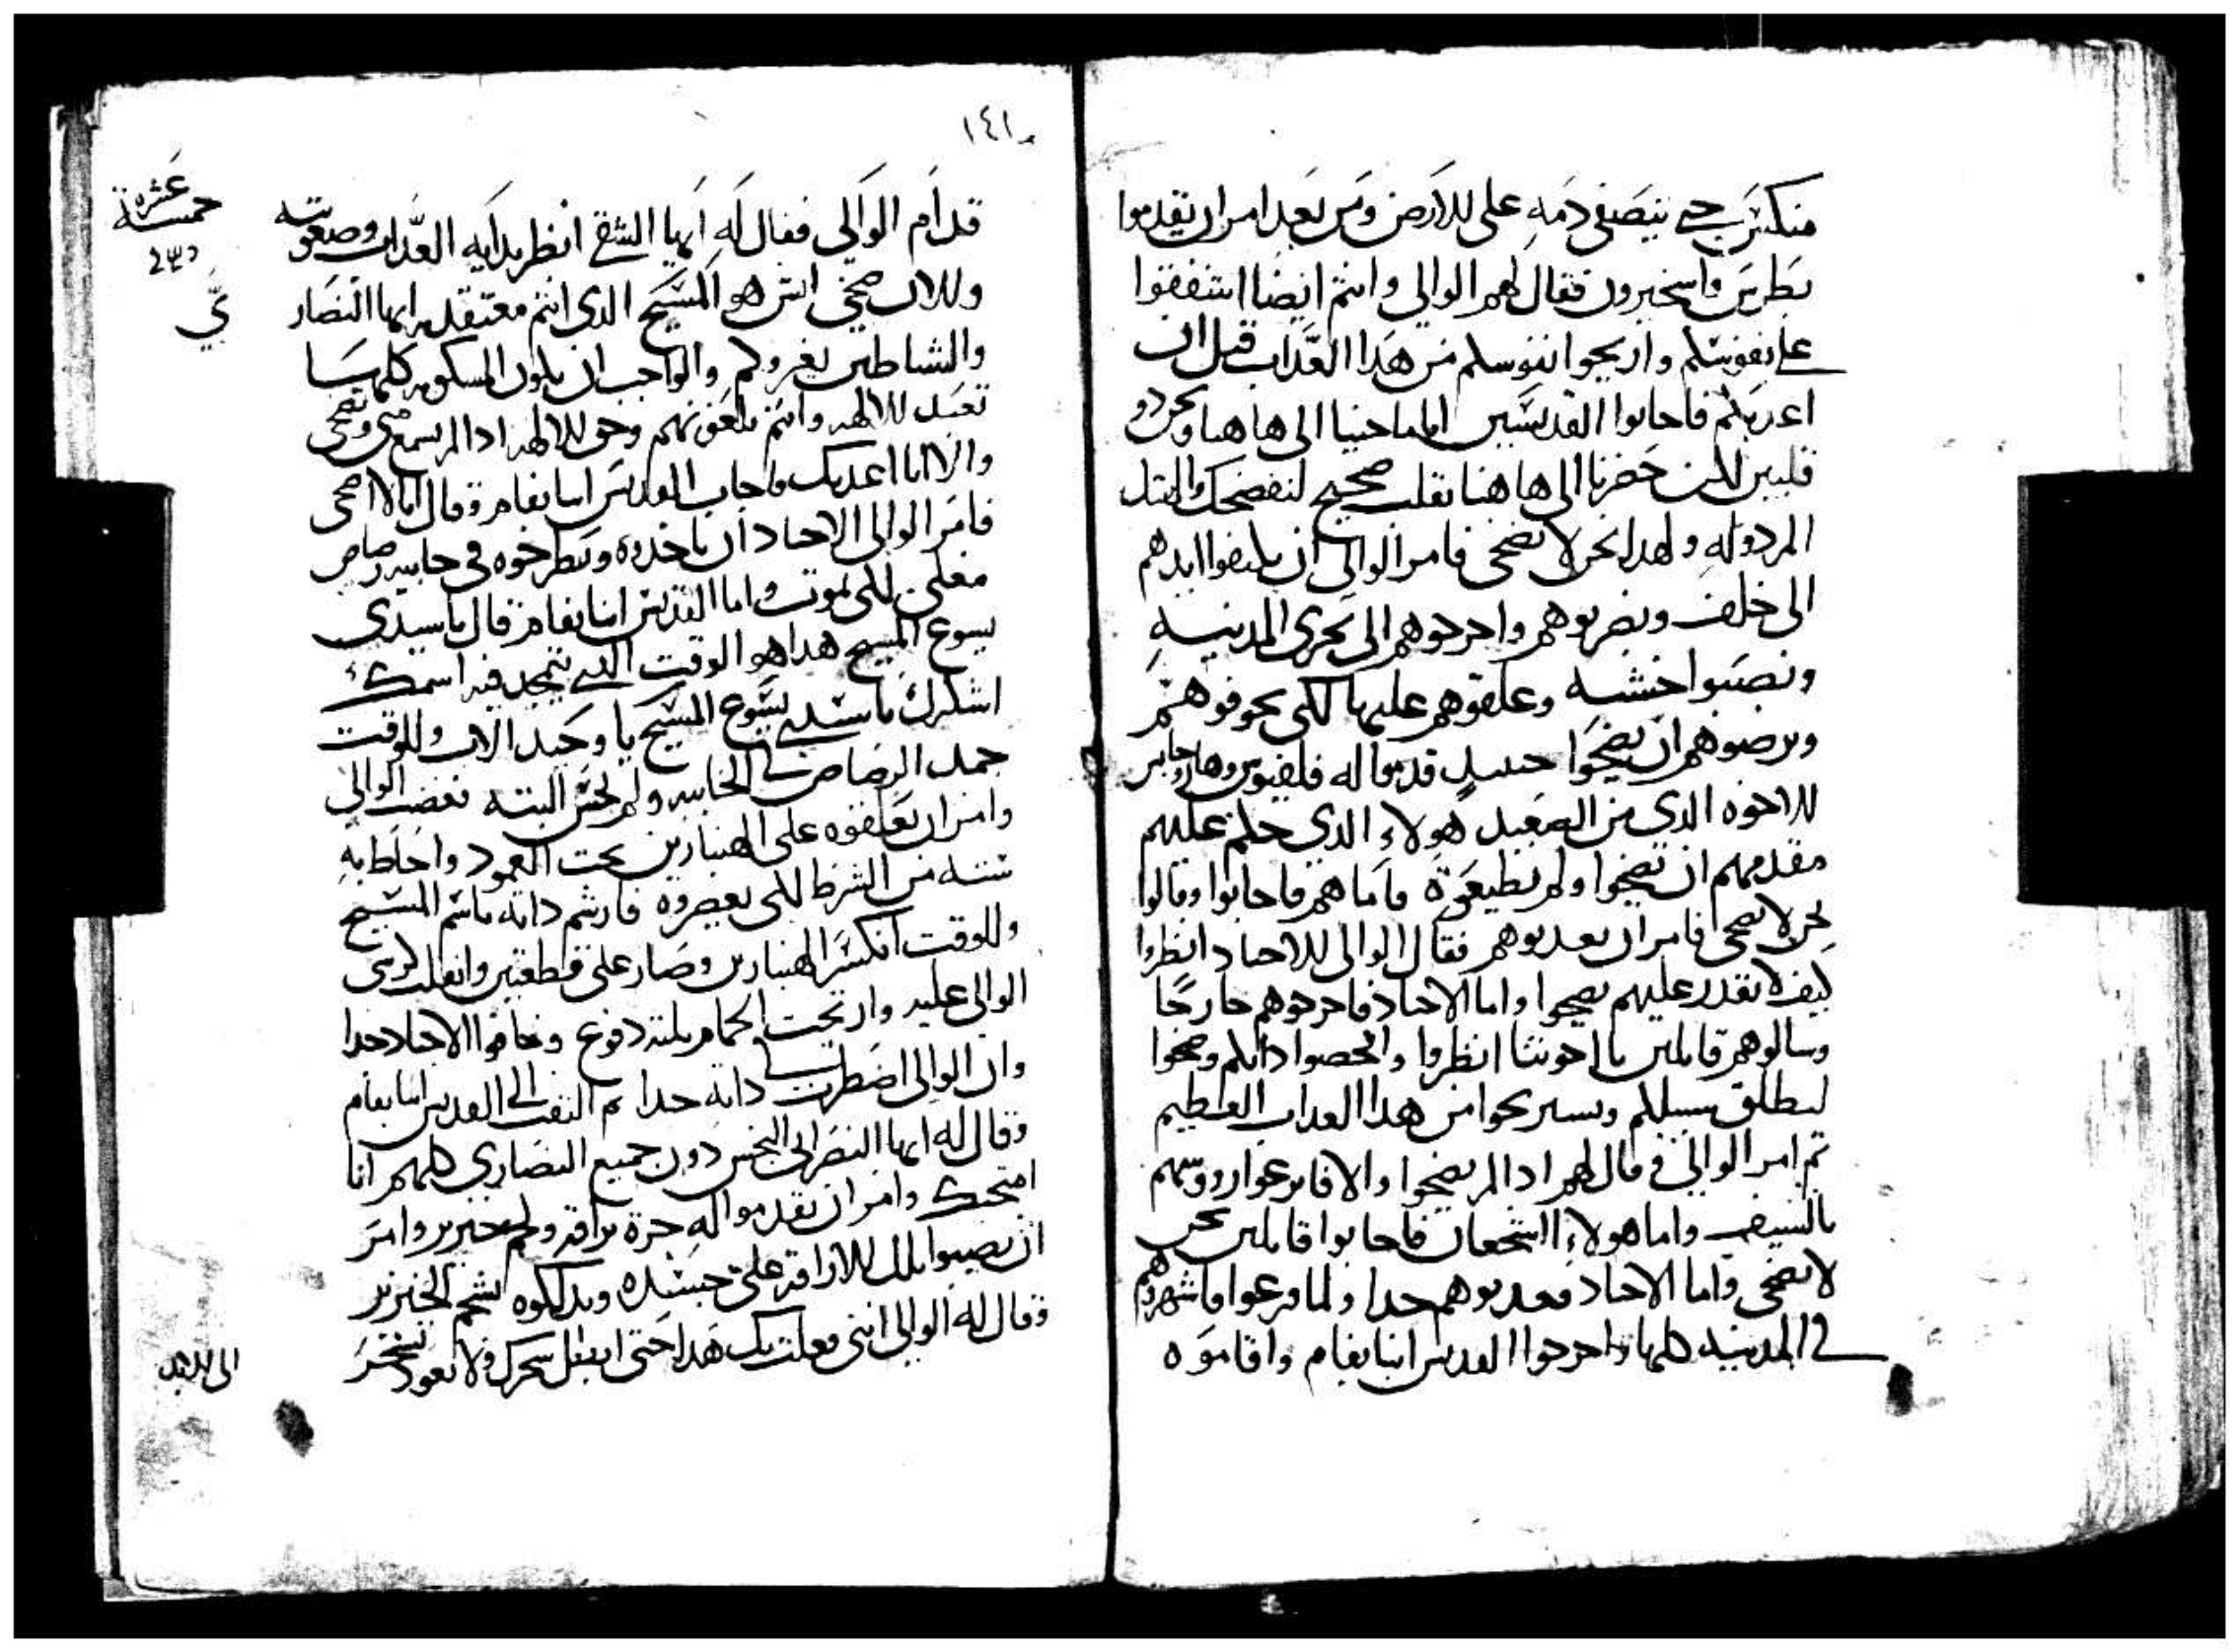 منكسَر حتى يتصفى دمه على الارض ومن بعد امر ان يقدموا
بطرس واسخيرون فقال لهم الوالي وانتم ايضا اشفقوا
على نفوسكم واريحوا نفوسكم من هذا العذاب قبل ان
اعذبكم فاجابوا القديسين اما جينا الى هاهنا
لكن حضرنا الى هاهنا بقلب صحيح لنفضحك
المردوله ولهدا نحن لا نضحي فامر الوالي ان يكتفوا ايديهم
الى خلف ويضربوهم واخرجوهم الى بحري المدينه
ونصبوا خشبه وعلقوهم عليها لكي يخوفوهم
ويرصوهم ان يضحوا حينيد قدموا له
الاخوه الذي من الصعيد هولاء الذي حكم عليهم
مقدمهم ان يضحوا ولم يطيعوه واما هم فاجابوا وقالوا
نحن لا نضحي فامر ان يعدبوهم فقال الوالي للاجناد انظروا
كيف لا نقدر عليهم يضحوا واما الاجناد فاخرجوهم خارجًا
وسالوهم قايلين يا اخوتنا انظروا داتكم وضحوا
لنطلق سبيلكم وتستريحوا من هدا العداب العظيم
تم امر الوالي وقال لهم ادا لم يضحوا والا فانزعوا رووسهم
بالسيف واما هولاء الشجعان فاجابوا قايلين نحن
لا نضحي واما الاجناد فعدبوهم جدا ولما فرغوا فاشهروهم
في المدينه كلها واخرجوا القديس انبا بغام واقاموه
١٤١
عشره
خمسة
قدام الوالي فقال له ايها الشقي انظر العداب وصعوبته
والان ضحي ايش هو المسيح الدي انتم معتقدين ايها النصار
والشياطين يغروكم والواجب ان يكون المسكونه كلها
للالهه وانتم تلعنونهم وحق الالهه ادا لم تسمع مني وتضحي
والا انا اعدبك فاجاب القديس انبا بغام وقال انا لا اضحي
فامر الوالي الاجناد ان ياخدوه ويطرحوه في خابيه رصاص
مغلي لكي يموت واما القديس انبا بغام قال يا سيدي
يسوع المسيح هدا هو الوقت الدي يتمجد فيه اسمك
اشكرك يا سيدي يسوع المسيح يا وحيد الاب وللوقت
جمد الرصاص في الخابيه ولم يحس البته فغضب الوالي
وامر ان يعلقوه على الهنبازين تحت العمود واحاط به
سته من الشرط لكي يعصروه فارشم داته باسم المسيح
وللوقت انكسر الهنبازين وصار على قطعتين وانقلب كرسي
الوالي عليه وارتجت الحمام تلته دفوع وخافوا الاجناد جدا
وان الوالي اضطرب في داته جدا تم التفت الى القديس انبا بغام
وقال له ايها النصراني النجس دون جميع النصاري كلهم انا
امتحنك وامر ان يقدموا له جرة اراقه ولحم خنزير وامر
ان يصبوا تلك الاراقه على جسده ويدلكوه بشحم الخنزير
وقال له الوالي انني فعلت بك هدا حتى ابطل سحرك ولا تعود تسخر